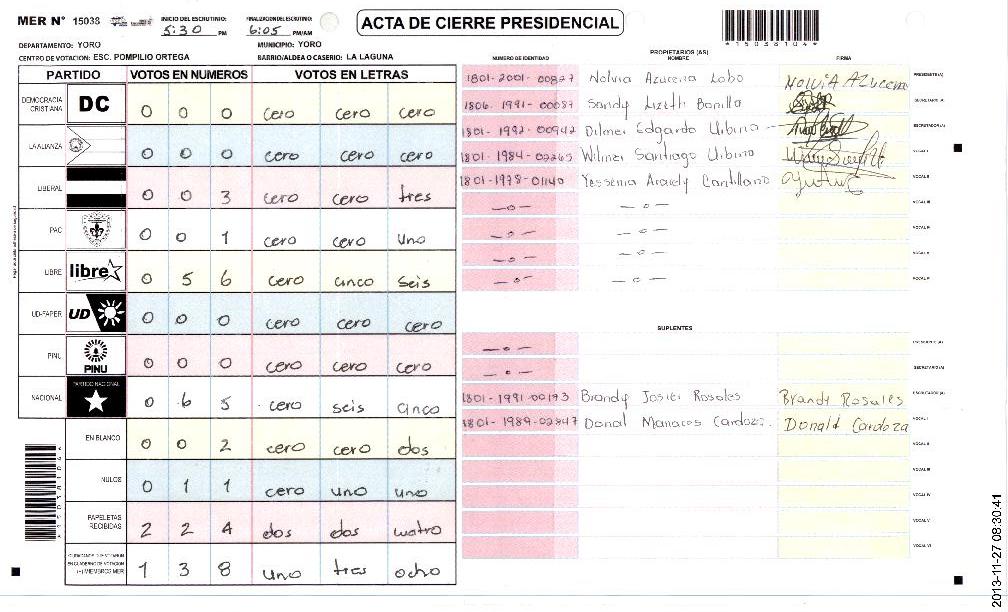 MER N° 15038
INICIO DEL ESCRUTINIO: 5:30 PM
FINALIZACION DEL ESCRUTINIO: 6:05 PM/AM
ACTA DE CIERRE PRESIDENCIAL
*15038104*
DEPARTAMENTO: YORO
MUNICIPIO: YORO
CENTRO DE VOTACION: ESC. POMPILIO ORTEGA
BARRIO/ALDEA O CASERIO: LA LAGUNA
PARTIDO VOTOS EN NUMEROS VOTOS EN LETRAS
DEMOCRACIA CRISTIANA DC 0 0 0 cero cero cero
LA ALIANZA 0 0 0 cero cero cero
LIBERAL 0 0 3 cero cero tres
PAC 0 0 1 cero cero uno
LIBRE libre 0 5 6 cero cinco seis
UD-FAPER UD 0 0 0 cero cero cero
PINU PINU 0 0 0 cero cero cero
NACIONAL PARTIDO NACIONAL 0 6 5 cero seis cinco
EN BLANCO 0 0 2 cero cero dos
NULOS 0 1 1 cero uno uno
PAPELETAS RECIBIDAS 2 2 4 dos dos cuatro
CIUDADANOS QUE VOTARON EN CUADERNO DE VOTACION (+) MIEMBROS MER 1 3 8 uno tres ocho
PROPIETARIOS (AS)
NUMERO DE IDENTIDAD NOMBRE FIRMA
1801-2001-00827 Nolvia Azucena Lobo Nolvia Azucena PRESIDENTE (A)
1806-1991-00087 Sandy Lizeth Bonilla SECRETARIO (A)
1801-1992-00942 Dilmer Edgardo Urbina ESCRUTADOR (A)
1801-1984-02265 Wilmer Santiago Urbina VOCAL I
1801-1978-01140 Yessenia Aracely Cantillano VOCAL II
-o- -o- VOCAL III
-o- -o- VOCAL IV
-o- -o- VOCAL V
-o- -o- VOCAL VI
SUPLENTES
-o- PRESIDENTE (A)
-o- SECRETARIO (A)
1801-1991-00193 Brandy Josier Rosales Brandy Rosales ESCRUTADOR (A)
1801-1989-02847 Donal Manaces Cardoza. Donald Cardoza VOCAL I
VOCAL II
VOCAL III
VOCAL IV
VOCAL V
VOCAL VI
2013-11-27 08:30:41